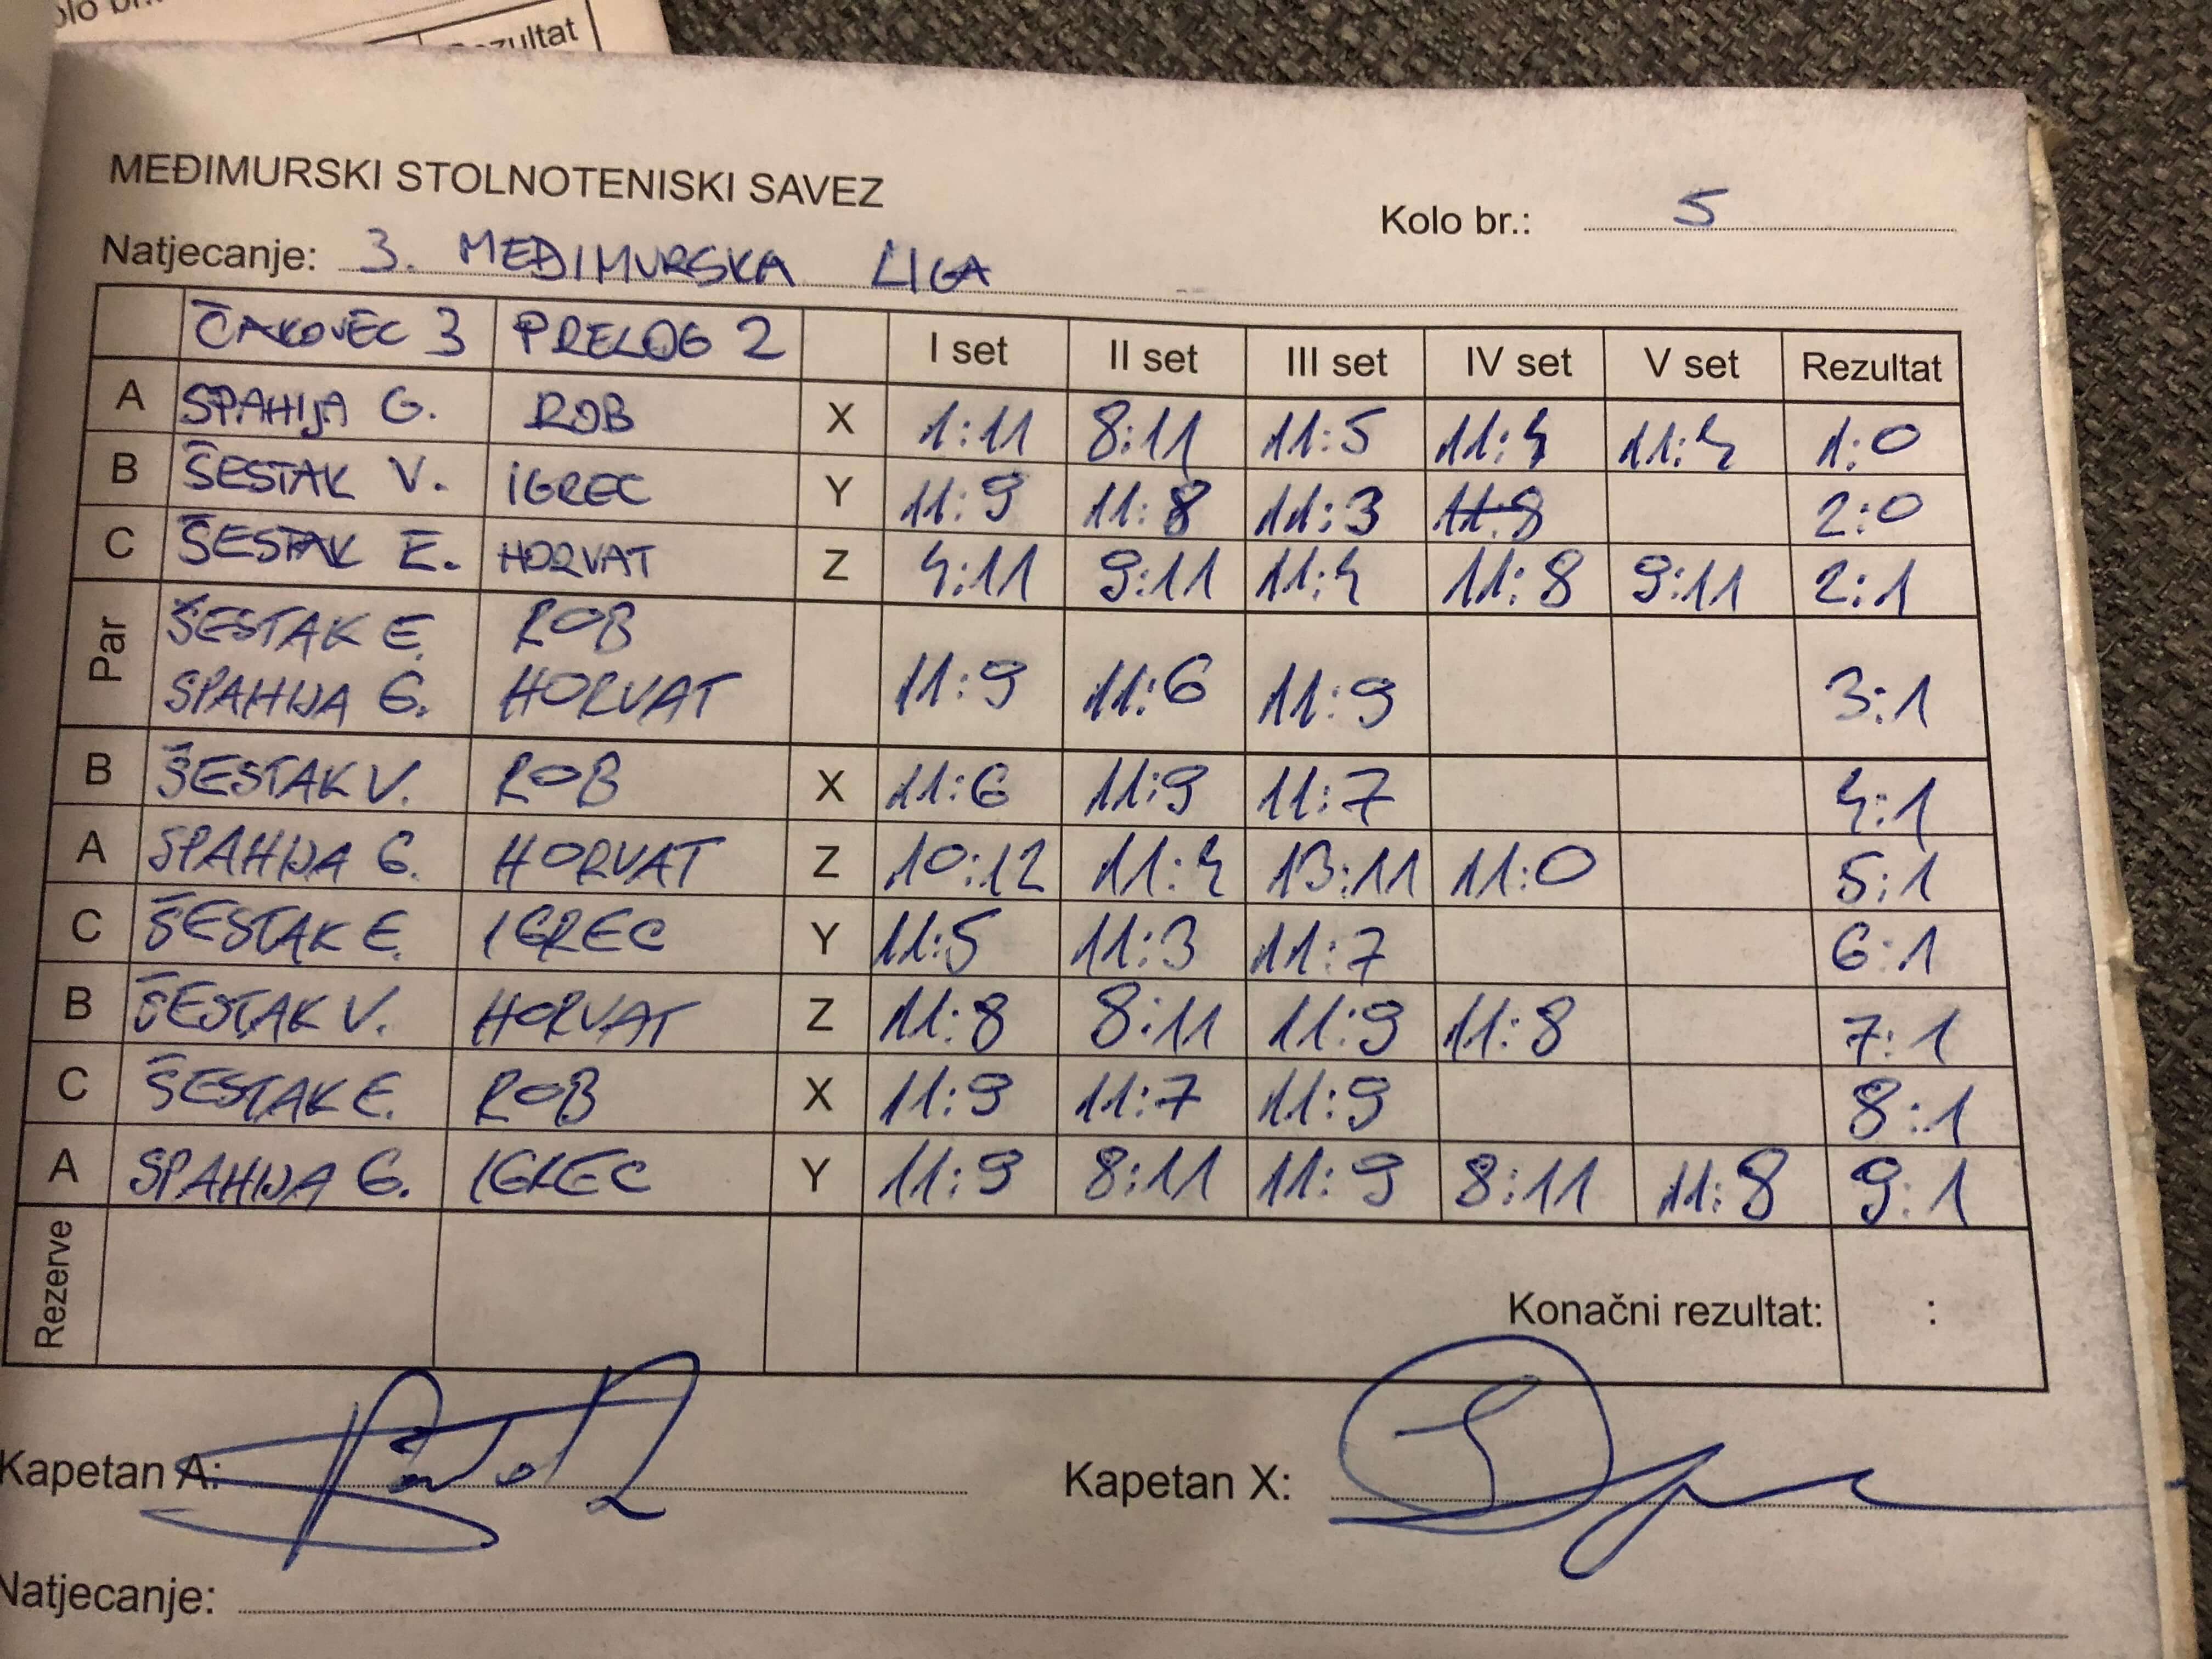 olo br.:
Rezultat
MEĐIMURSKI STOLNOTENISKI SAVEZ
Kolo br.: 5
Natjecanje: 3. MEĐIMURSKA LIGA
ČAKOVEC 3 PRELOG 2 I set II set III set IV set V set Rezultat
A SPAHIJA G. ROB X 1:11 8:11 11:5 11:4 11:4 1:0
B ŠESTAK V. IGREC Y 11:9 11:8 11:3 11:8 2:0
C ŠESTAK E. HORVAT Z 4:11 9:11 11:4 11:8 9:11 2:1
Par ŠESTAK E. ROB
SPAHIJA G. HORVAT 11:9 11:6 11:9 3:1
B ŠESTAK V. ROB X 11:6 11:9 11:7 4:1
A SPAHIJA G. HORVAT Z 10:12 11:4 13:11 11:0 5:1
C ŠESTAK E. IGREC Y 11:5 11:3 11:7 6:1
B ŠESTAK V. HORVAT Z 11:8 8:11 11:9 11:8 7:1
C ŠESTAK E. ROB X 11:9 11:7 11:9 8:1
A SPAHIJA G. IGREC Y 11:9 8:11 11:9 8:11 11:8 9:1
Rezerve Konačni rezultat: :
Kapetan A: Kapetan X:
Natjecanje: